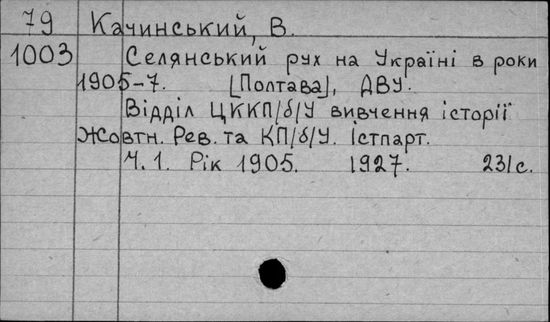 79 Качинський, В.
1003 Селянський рух на Україні в роки
1905-7. [Полтава], ДВУ.
Відділ ЦККП/б/У вивчення історії
Жовтн. Рев. та КП/б/У. Істпарт.
Ч.1. Рік 1905. 1927. 231с.